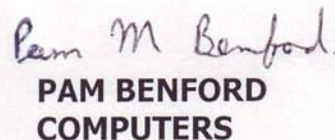 Pam M Benford.
PAM BENFORD
COMPUTERS